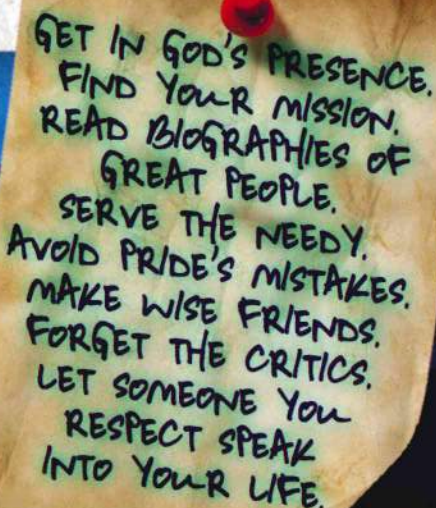 GET IN GOD'S PRESENCE.
FIND YOUR MISSION.
READ BIOGRAPHIES OF
GREAT PEOPLE.
SERVE THE NEEDY.
AVOID PRIDE'S MISTAKES.
MAKE WISE FRIENDS.
FORGET THE CRITICS.
LET SOMEONE YOU
RESPECT SPEAK
INTO YOUR LIFE.